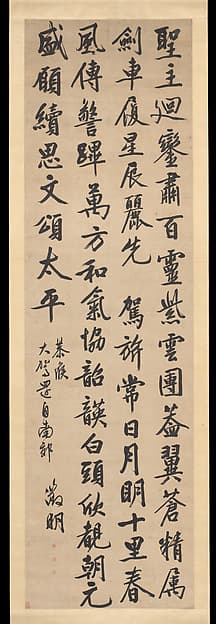 聖主迴鑾肅百靈紫雲團蓋翼蒼精属
劍車履星辰麗先 駕旂常日月明十里春
風傳警蹕萬方和氣協韶韺白頭欣覩朝元
盛願續思文頌太平
恭候
大駕還自南郊 徵明